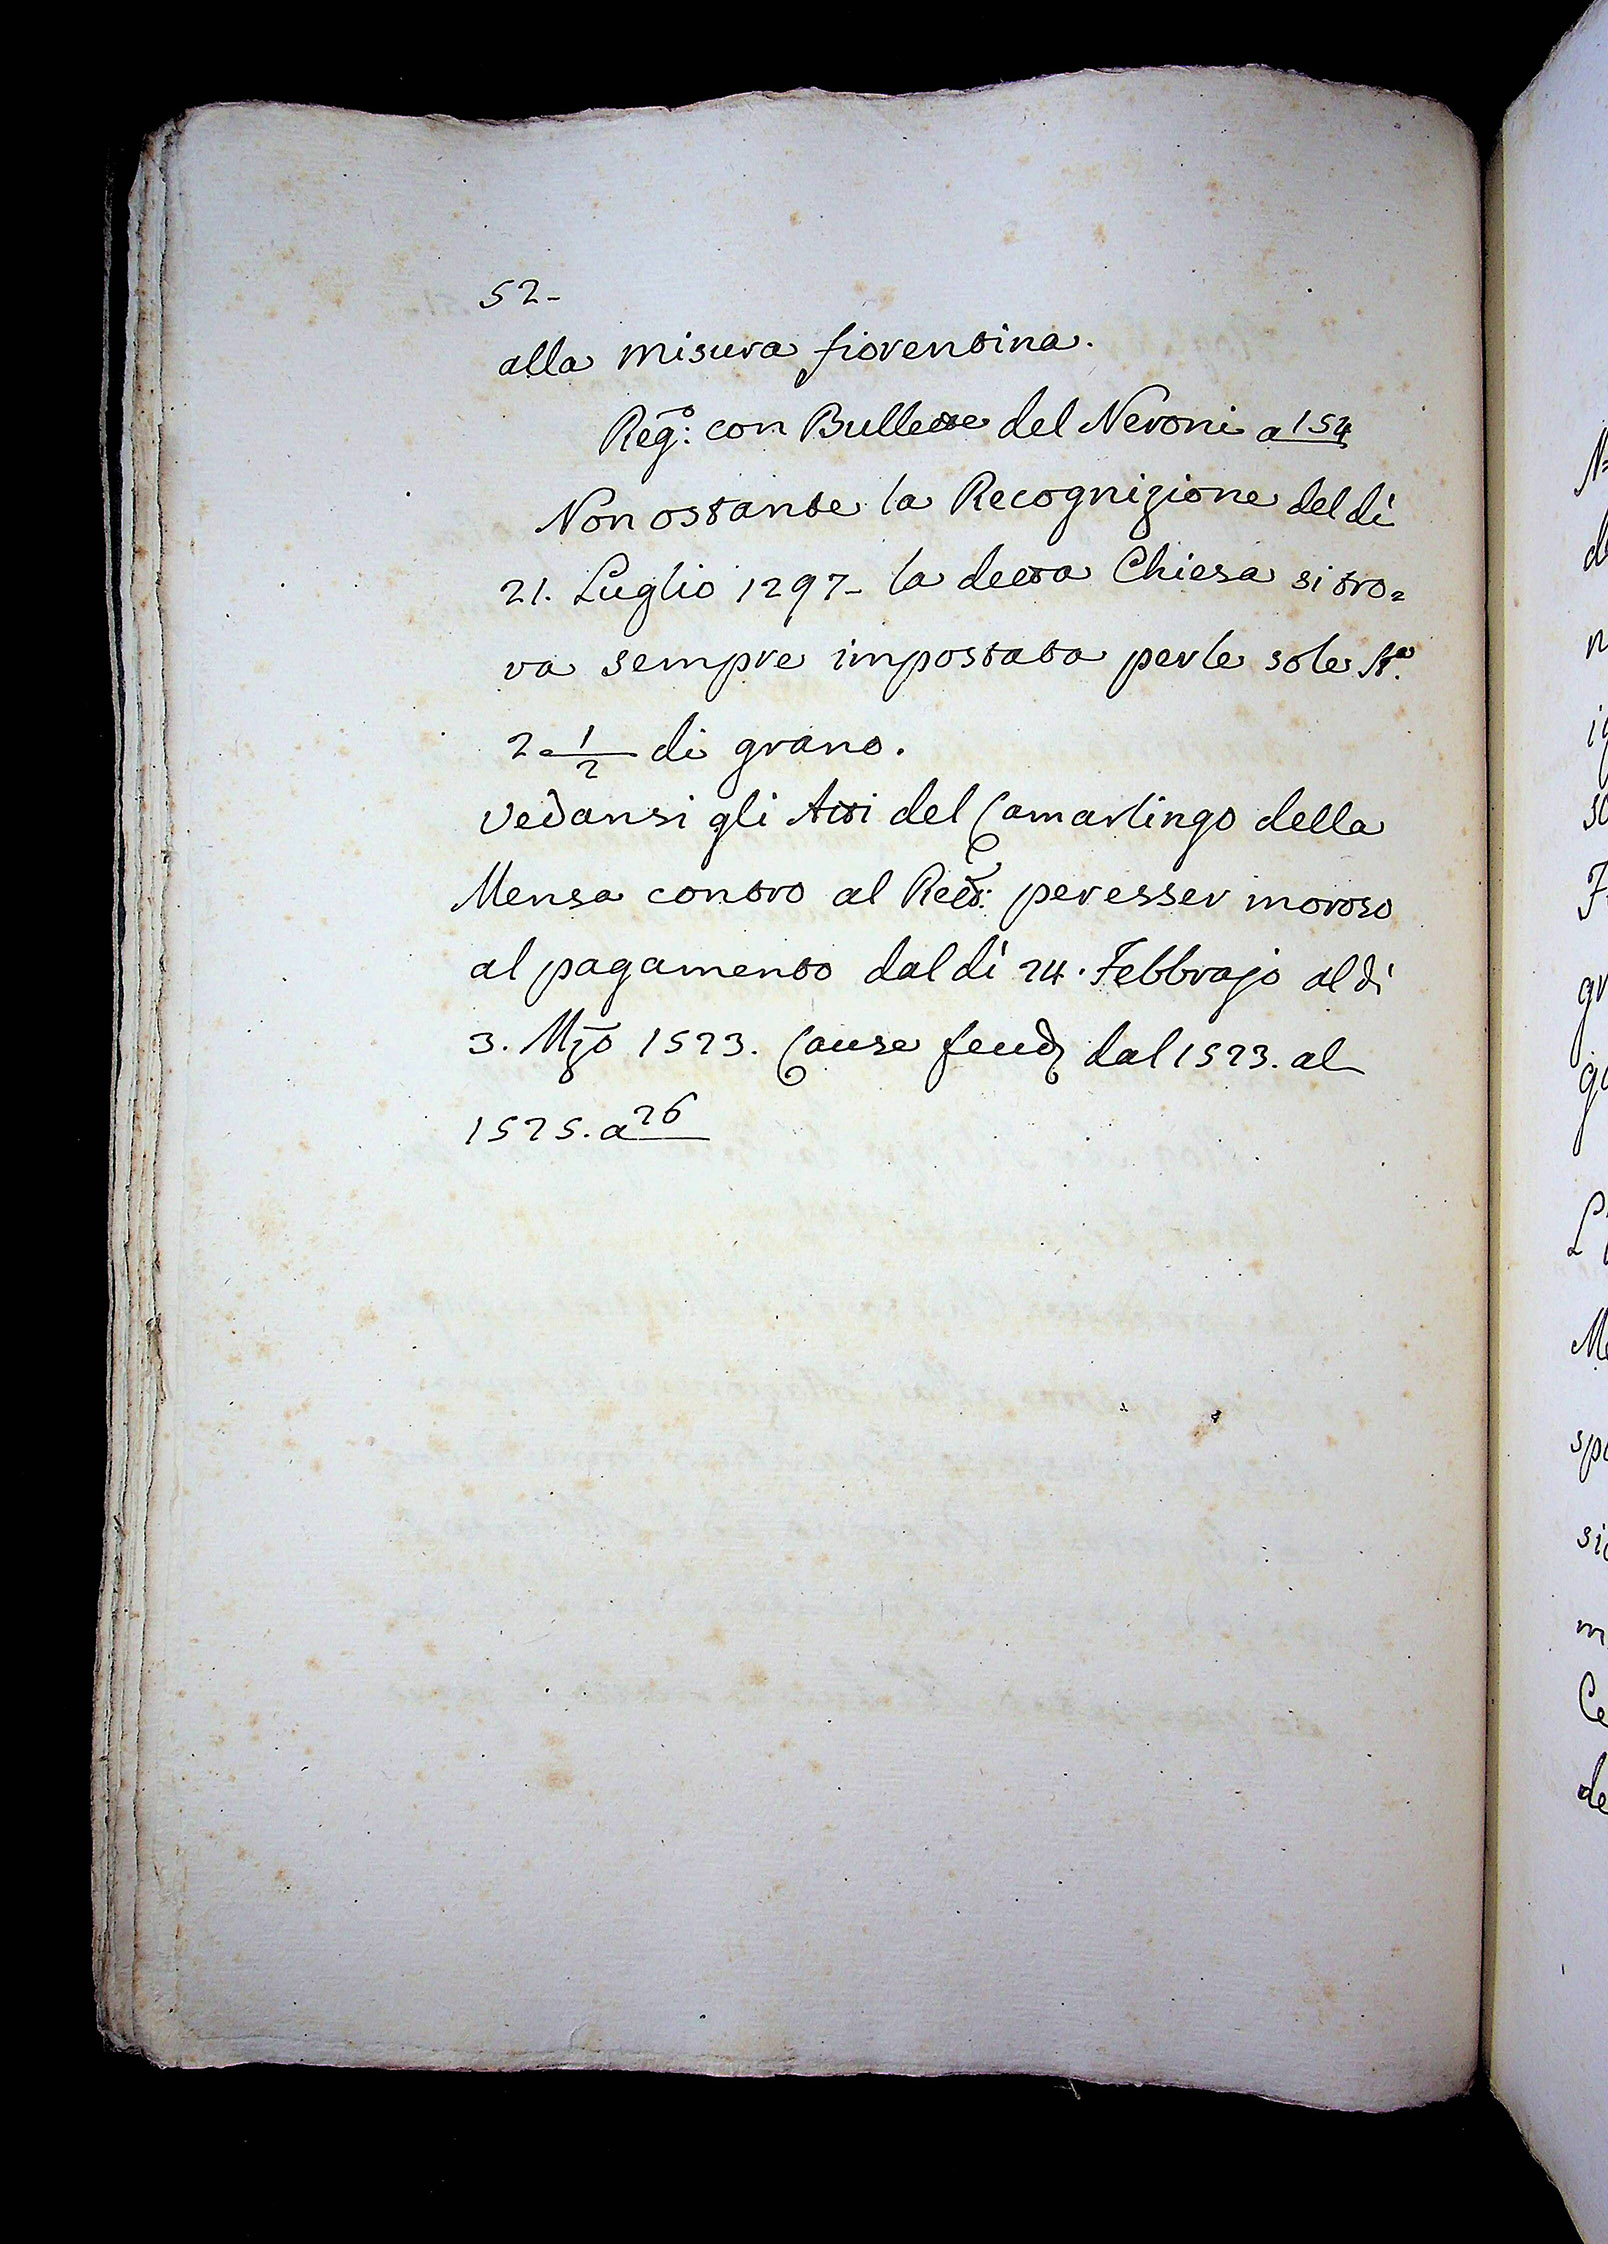 52-
alla misura fiorentina.
Reg:º con Bullette del Neroni a 154
Non ostante la Recognizione del dì
21. Luglio 1297- la detta Chiesa si tro=
va sempre impostata per le sole st.ª
2 1/2 di grano.
Vedansi gli Atti del Camarlingo della
Mensa contro al Rett: per esser moroso
al pagamento dal dì 24. Febbrajo al dì
3. Mzo 1523. Cause feud dal 1523. al
1525. a 26